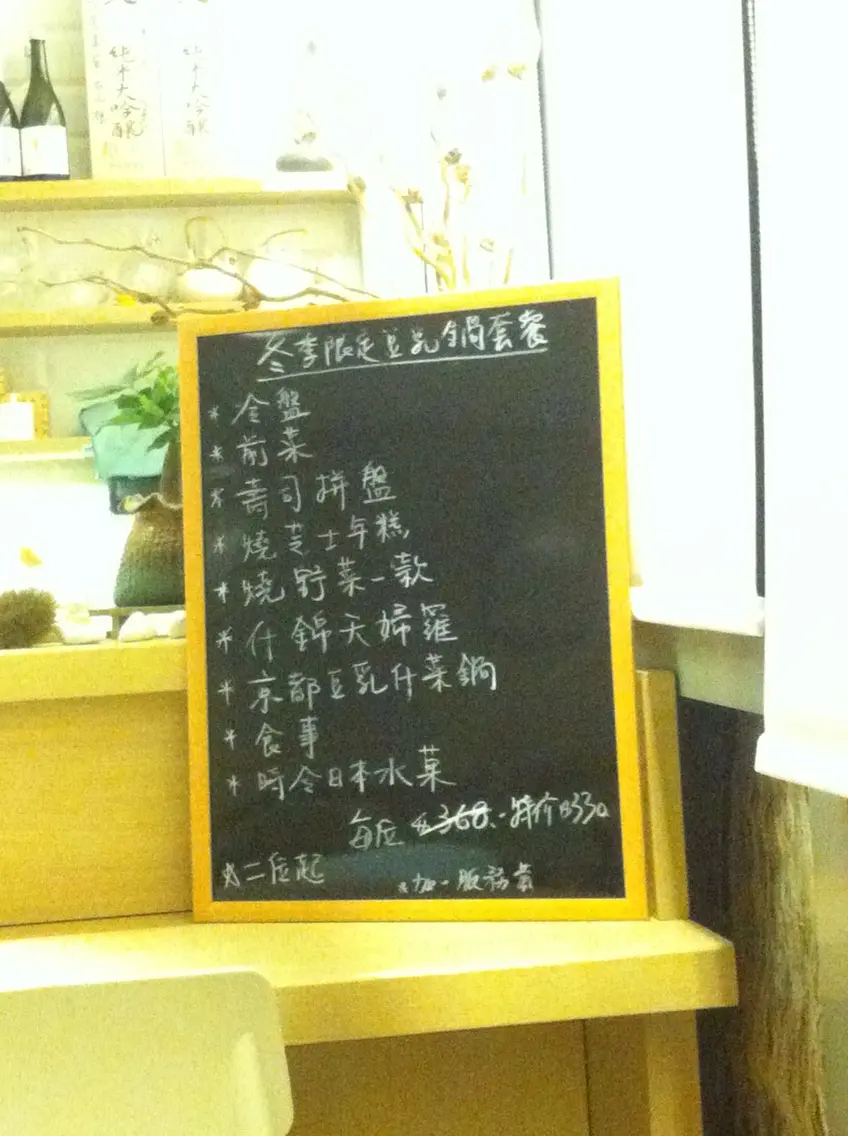 純米大吟醸
純米大吟醸
冬季限定豆乳鍋套餐
* 冷盤
* 前菜
* 壽司拼盤
* 燒芝士年糕
* 燒野菜一款
* 什錦天婦羅
* 京都豆乳什菜鍋
* 食事
* 時令日本水菓
每位 $368.-特价$330
*二位起
*加一服務費